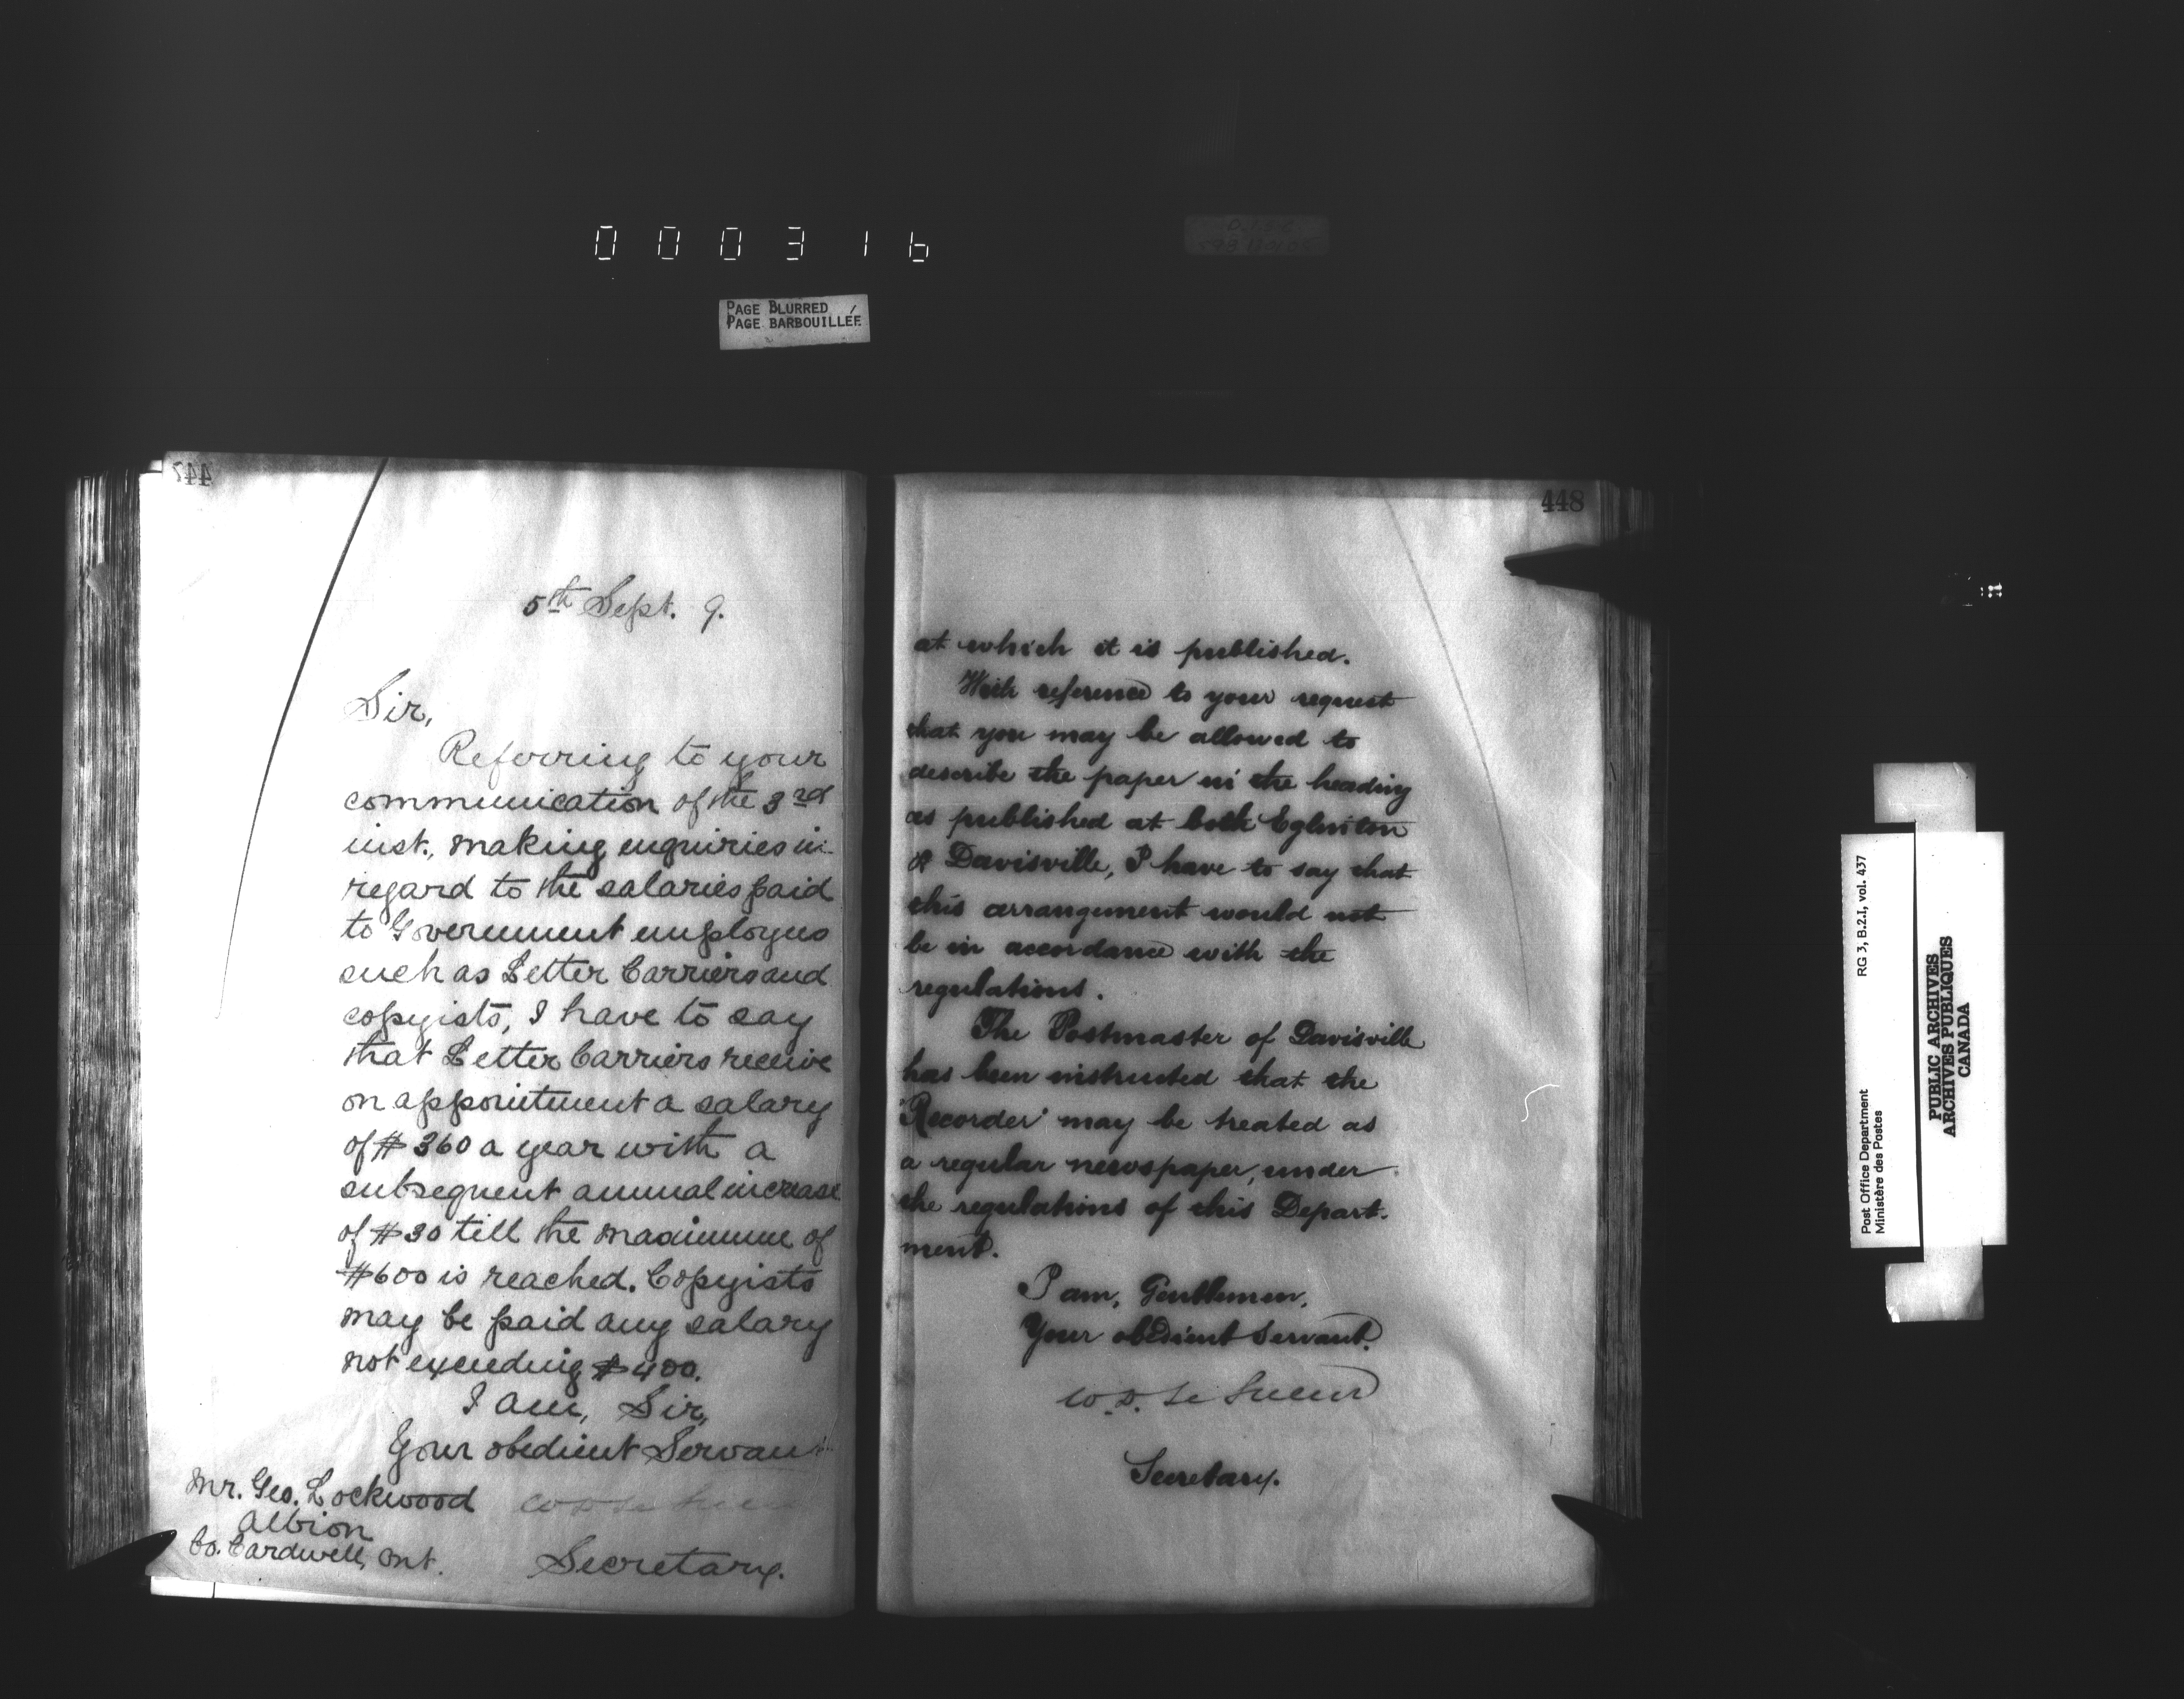 000316
PAGE BLURRED
PAGE BARBOUILLÉE
447
5th Sept. 9.
Sir,
Referring to your
communication of the 3rd
inst., making enquiries in
regard to the salaries paid
to Government employees
such as Letter Carriers and
copyists, I have to say
that Letter Carriers receive
on appointment a salary
of $360 a year with a
subsequent annual increase
of $30 till the maximum of
$600 is reached. Copyists
may be paid any salary
not exceeding $400.
I am, Sir,
Your obedient Servant
Mr. Geo. Lockwood
Albion
Co. Cardwell, Ont.
W D Le Sueur
Secretary.
448
at which it is published.
With reference to your request
that you may be allowed to
describe the paper in the heading
as published at both Eglinton
& Davisville, I have to say that
this arrangement would not
be in accordance with the
regulations.
The Postmaster of Davisville
has been instructed that the
"Recorder" may be treated as
a regular newspaper, under
the regulations of this Depart-
ment.
I am, Gentlemen,
Your obedient Servant.
W.D. Le Sueur
Secretary.
Post Office Department
Ministère des Postes
RG 3, B.2.I, vol. 437
PUBLIC ARCHIVES
ARCHIVES PUBLIQUES
CANADA